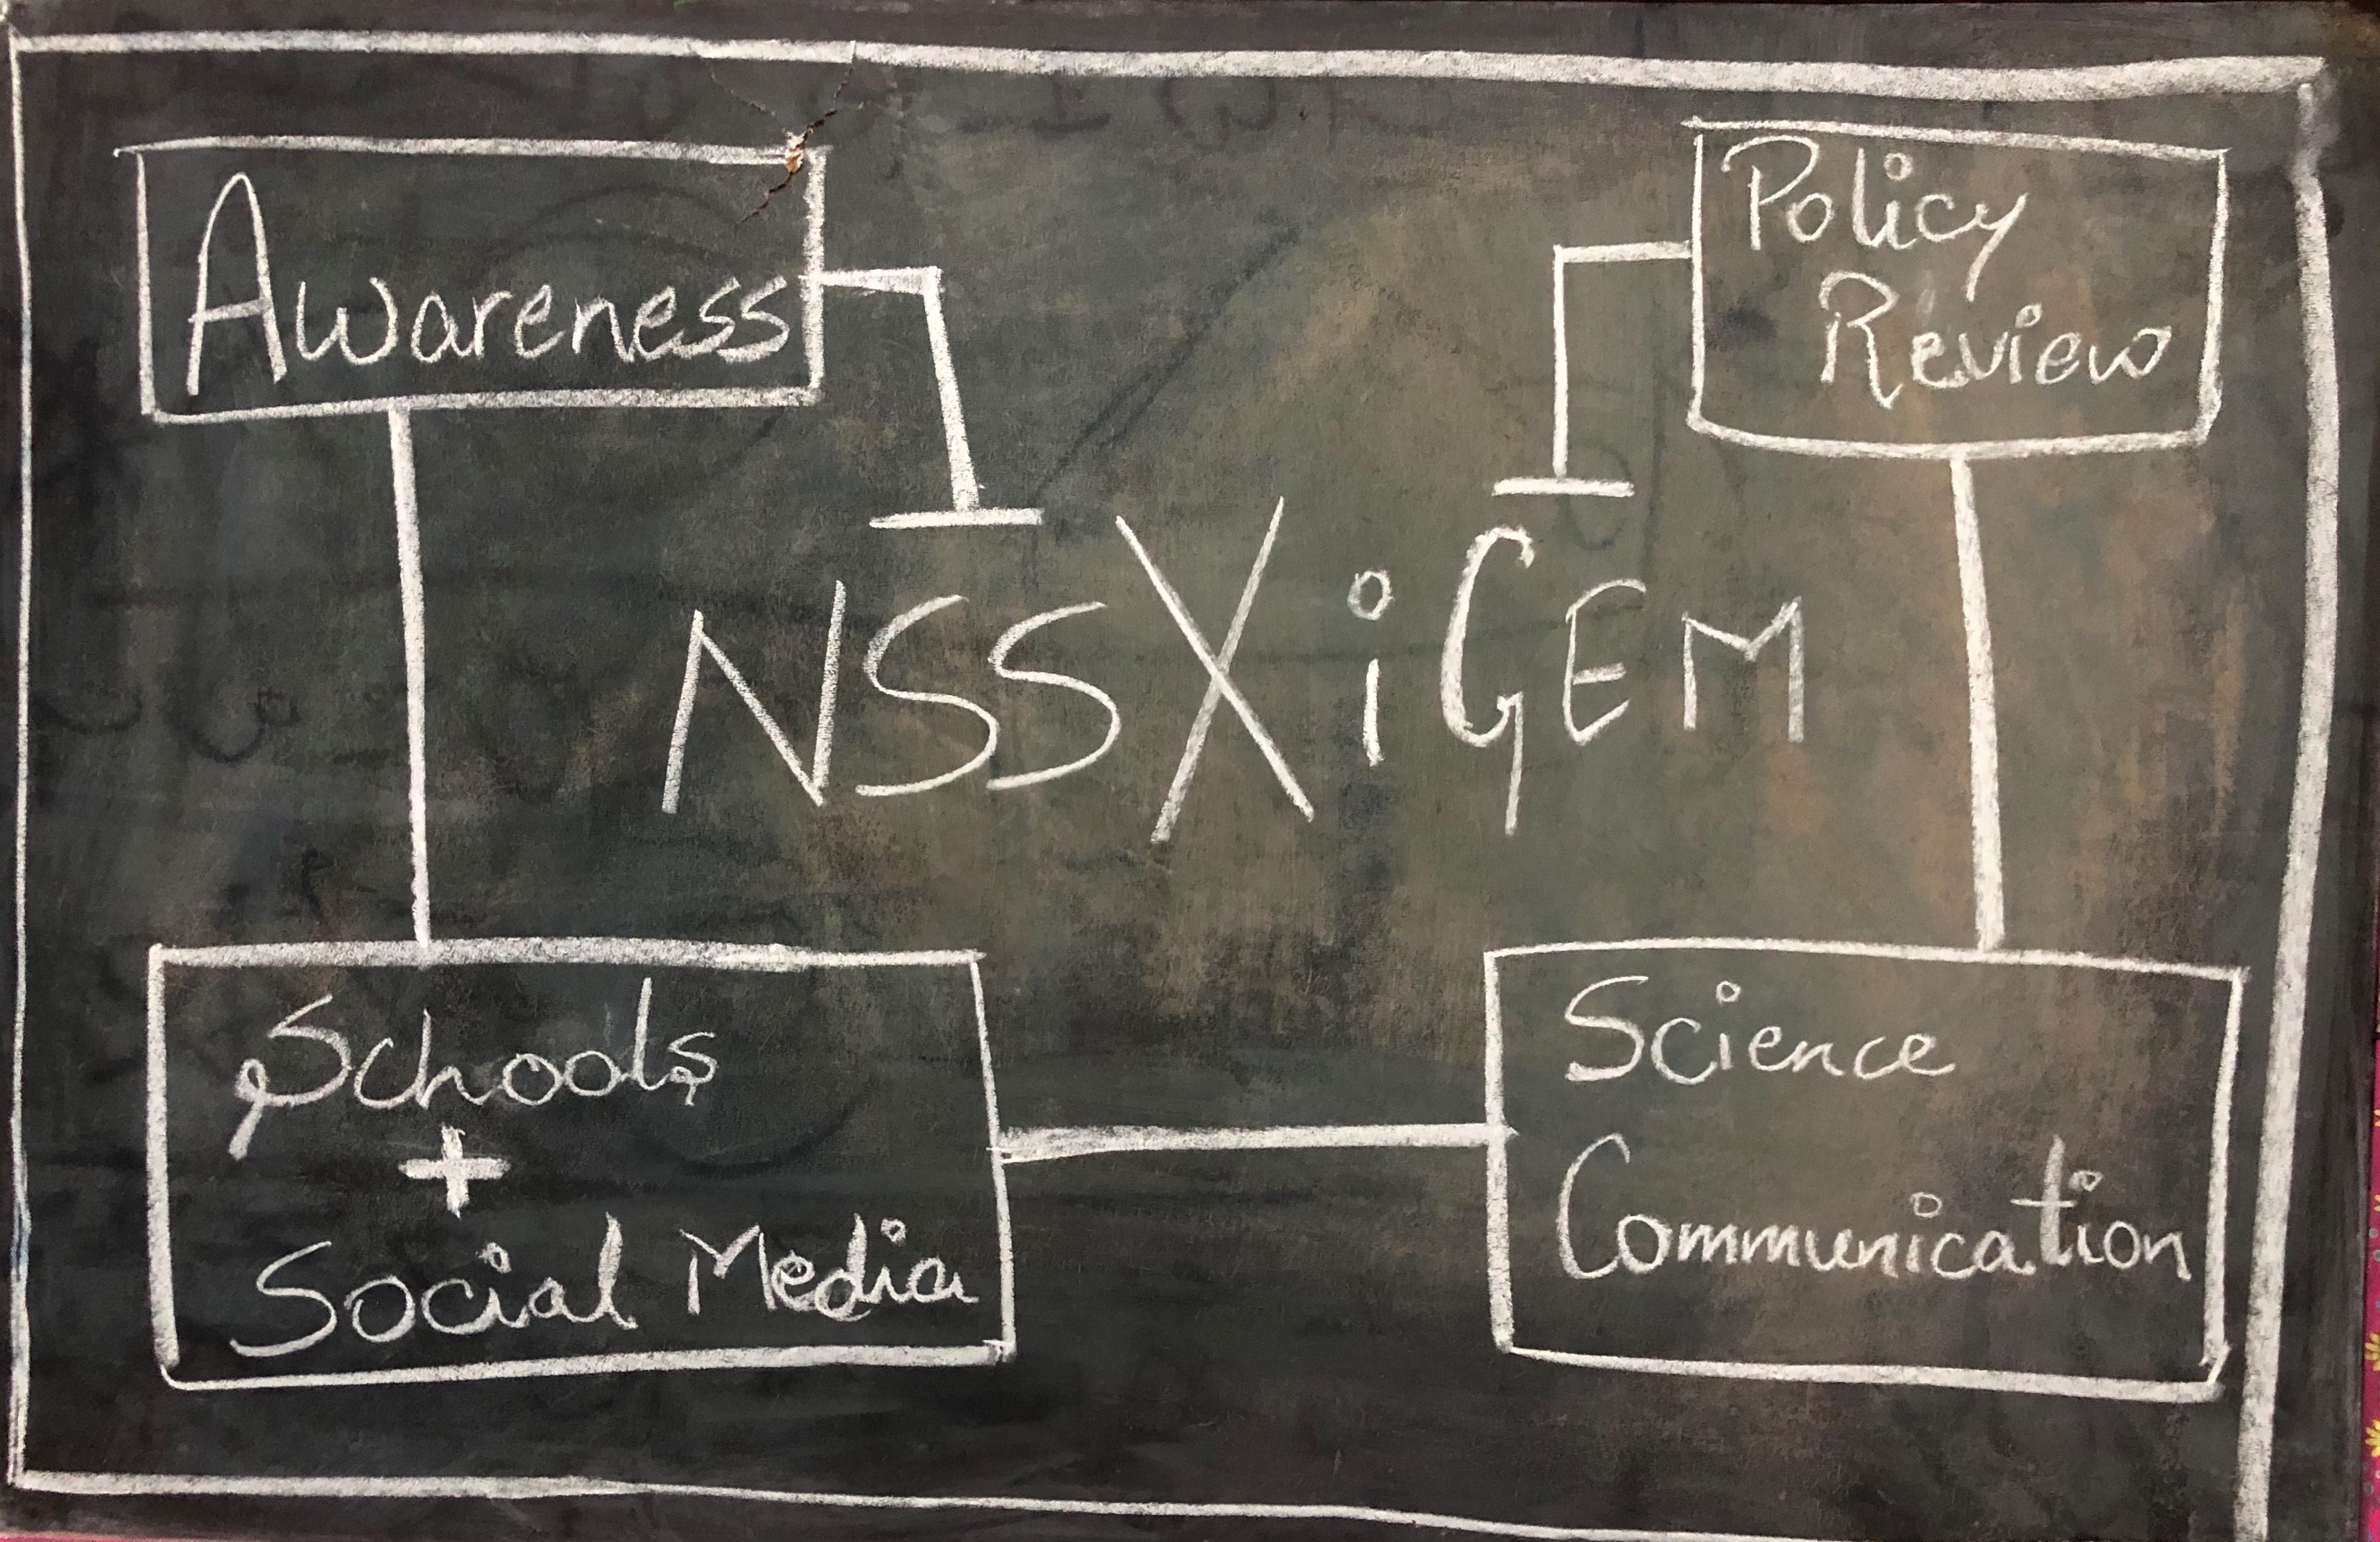 Awareness
Policy
Review
NSS X iGEM
Schools
+
Social Media
Science
Communication